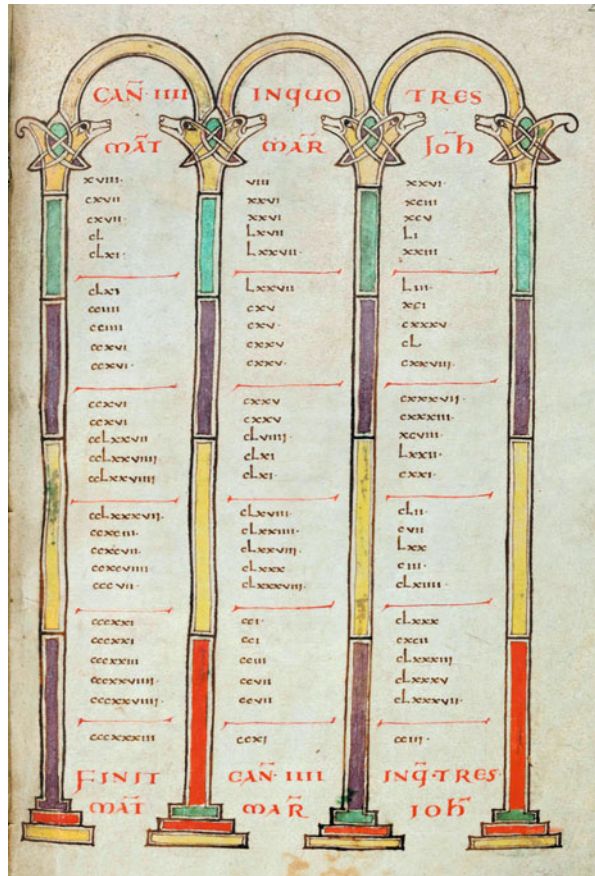 CAÑ·IIII INQUO TRES
MAT̄ MAR̄ IOH̄
xviii· viii xxvi·
cxvii xxvi xciii
cxvii· xxvi xcv
cL Lxvii Li
cLxi· Lxxvii· xxiii
cLxi Lxxvii Liii·
cciiii cxv xci
cciiii cxv· cxxxv
ccxvi cxxv cL
ccxvi· cxxv· cxxviii·
ccxvi cxxxv cxxxvii·
ccxvi cxxv cxxxiii·
ccLxxvii cLviiii· xcviii·
ccLxxviiii cLxi Lxxii·
ccLxxviiii cLxi· cxxi·
ccLxxxvii· cLxviii· cLii·
ccxciii· cLxxiiii· cvii
ccxcvii· cLxxviii· Lxx
ccxcviiii· cLxxx· ciii·
cccvii· cLxxxviii· cLxiiii·
cccxxi cci· cLxxx
cccxxi cci cxcii
cccxxiii cciii cLxxxiii
cccxxviiii· ccvii cLxxxv
cccxxviiii· ccvii cLxxxvii·
cccxxxiii ccxi cciii·
FINIT CAÑ·IIII INQ̄·TRES·
MAT̄ MAR̄ IOH̄